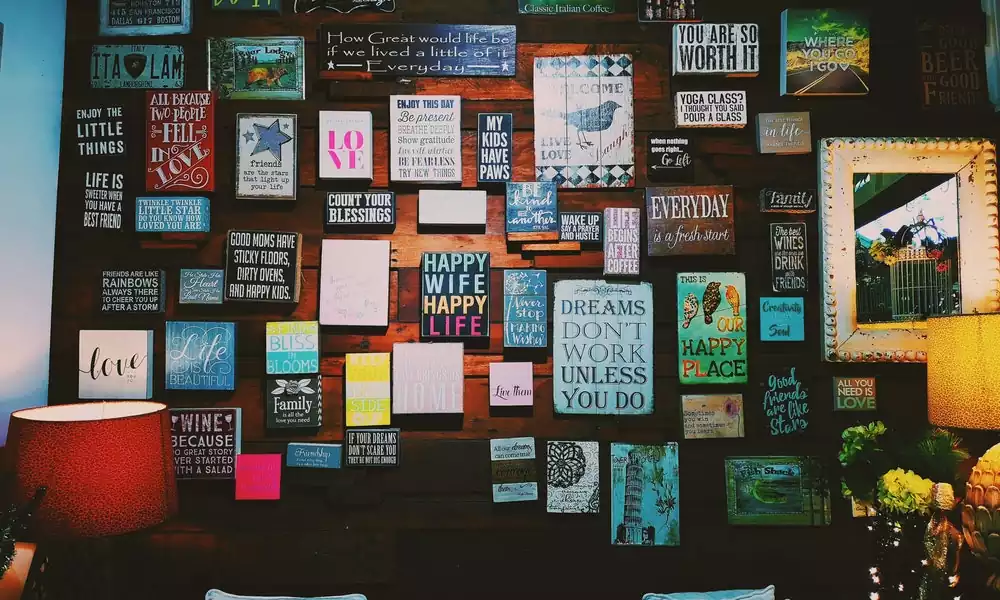 SAN FRANCISCO 715
DALLAS 617
Classic Italian Coffee
ITALY
ITA LAM
How Great would life be
if we lived a little of it
Everyday
YOU ARE SO
WORTH IT
WHERE
YOU GO
I GO
GOOD
BEER
GOOD
FRIENDS
ENJOY THE
LITTLE
THINGS
ALL BECAUSE
TWO PEOPLE
FELL
IN
LOVE
friends
are the stars
that light up
your life
LO
VE
ENJOY THIS DAY
Be present
BREATHE DEEPLY
Show gratitude
BE FEARLESS
TRY NEW THINGS
MY
KIDS
HAVE
PAWS
WELCOME
LIVE
LOVE
laugh
YOGA CLASS?
I THOUGHT YOU SAID
POUR A GLASS
when nothing
goes right...
Go Left
in life
LIFE IS
SWEETER WHEN
YOU HAVE A
BEST FRIEND
TWINKLE TWINKLE
LITTLE STAR
DO YOU KNOW HOW
LOVED YOU ARE
COUNT YOUR
BLESSINGS
BE
kind to
one
another
WAKE UP
SAY A PRAYER
AND HUSTLE
LIFE
BEGINS
AFTER
COFFEE
EVERYDAY
is a fresh start
Family
The best
WINES
DRINK
FRIENDS
GOOD MOMS HAVE
STICKY FLOORS,
DIRTY OVENS,
AND HAPPY KIDS.
FRIENDS ARE LIKE
RAINBOWS
ALWAYS THERE
TO CHEER YOU UP
AFTER A STORM
Heart
HAPPY
WIFE
HAPPY
LIFE
Never
stop
MAKING
Wishes
DREAMS
DON'T
WORK
UNLESS
YOU DO
THIS IS
OUR
HAPPY
PLACE
Creativity
Soul
love
Life
IS
BEAUTIFUL
BLISS
IN
BLOOMS
Family
is all the
love you need
SIDE
HOME
Live them
good
friends
are like
stars
ALL YOU
NEED IS
LOVE
Sometimes you
WIN
and sometimes
you learn
WINE
BECAUSE
NO GREAT STORY
EVER STARTED
WITH A SALAD
Friendship
IF YOUR DREAMS
DON'T SCARE YOU
THEY'RE NOT BIG ENOUGH
All our dreams
can come true